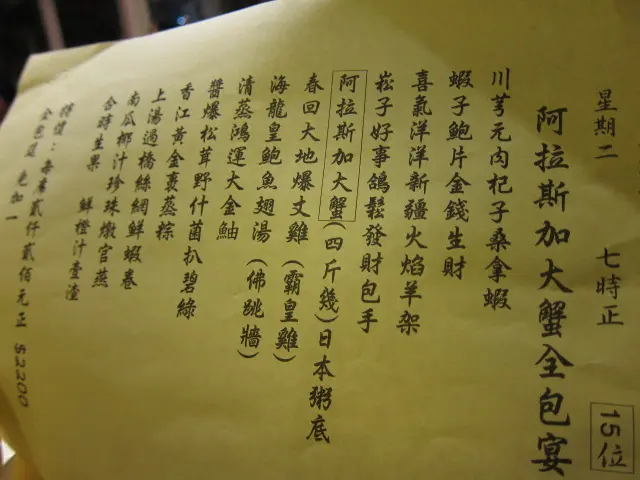 星期二 七時正 15位
阿拉斯加大蟹全包宴
川芎元肉杞子桑拿蝦
蝦子鮑片金錢生財
喜氣洋洋新疆火焰羊架
崧子好事鴿鬆發財包手
阿拉斯加大蟹(四斤幾)日本粥底
春回大地爆丈雞(霸皇雞)
海龍皇鮑魚翅湯(佛跳牆)
清蒸鴻運大金鮋
醬爆松茸野什菌扒碧綠
香江黃金裹蒸粽
上湯過橋絲網鮮蝦卷
南瓜椰汁珍珠燉官燕
合時生果 鮮橙汁壹渣
特價:每席貳仟貳佰元正 $2200
全包茶 免加一